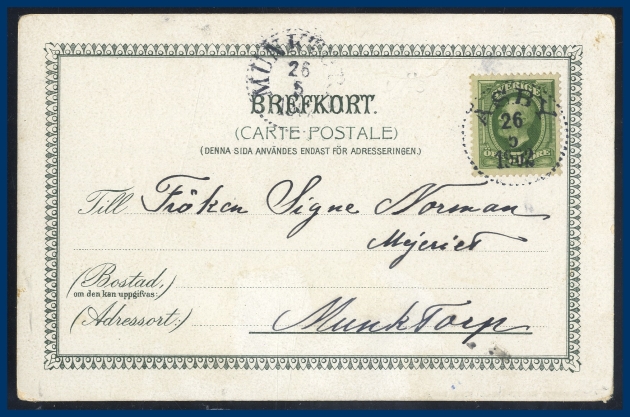 MUNK
26
5
BREFKORT.
(CARTE POSTALE)
(DENNA SIDA ANVÄNDES ENDAST FÖR ADRESSERINGEN.)
SVERIGE
26
5
1902
Till Fröken Signe Norman
Mejeriet
(Bostad,
om den kan uppgifvas:)
(Adressort:) MunkTorp